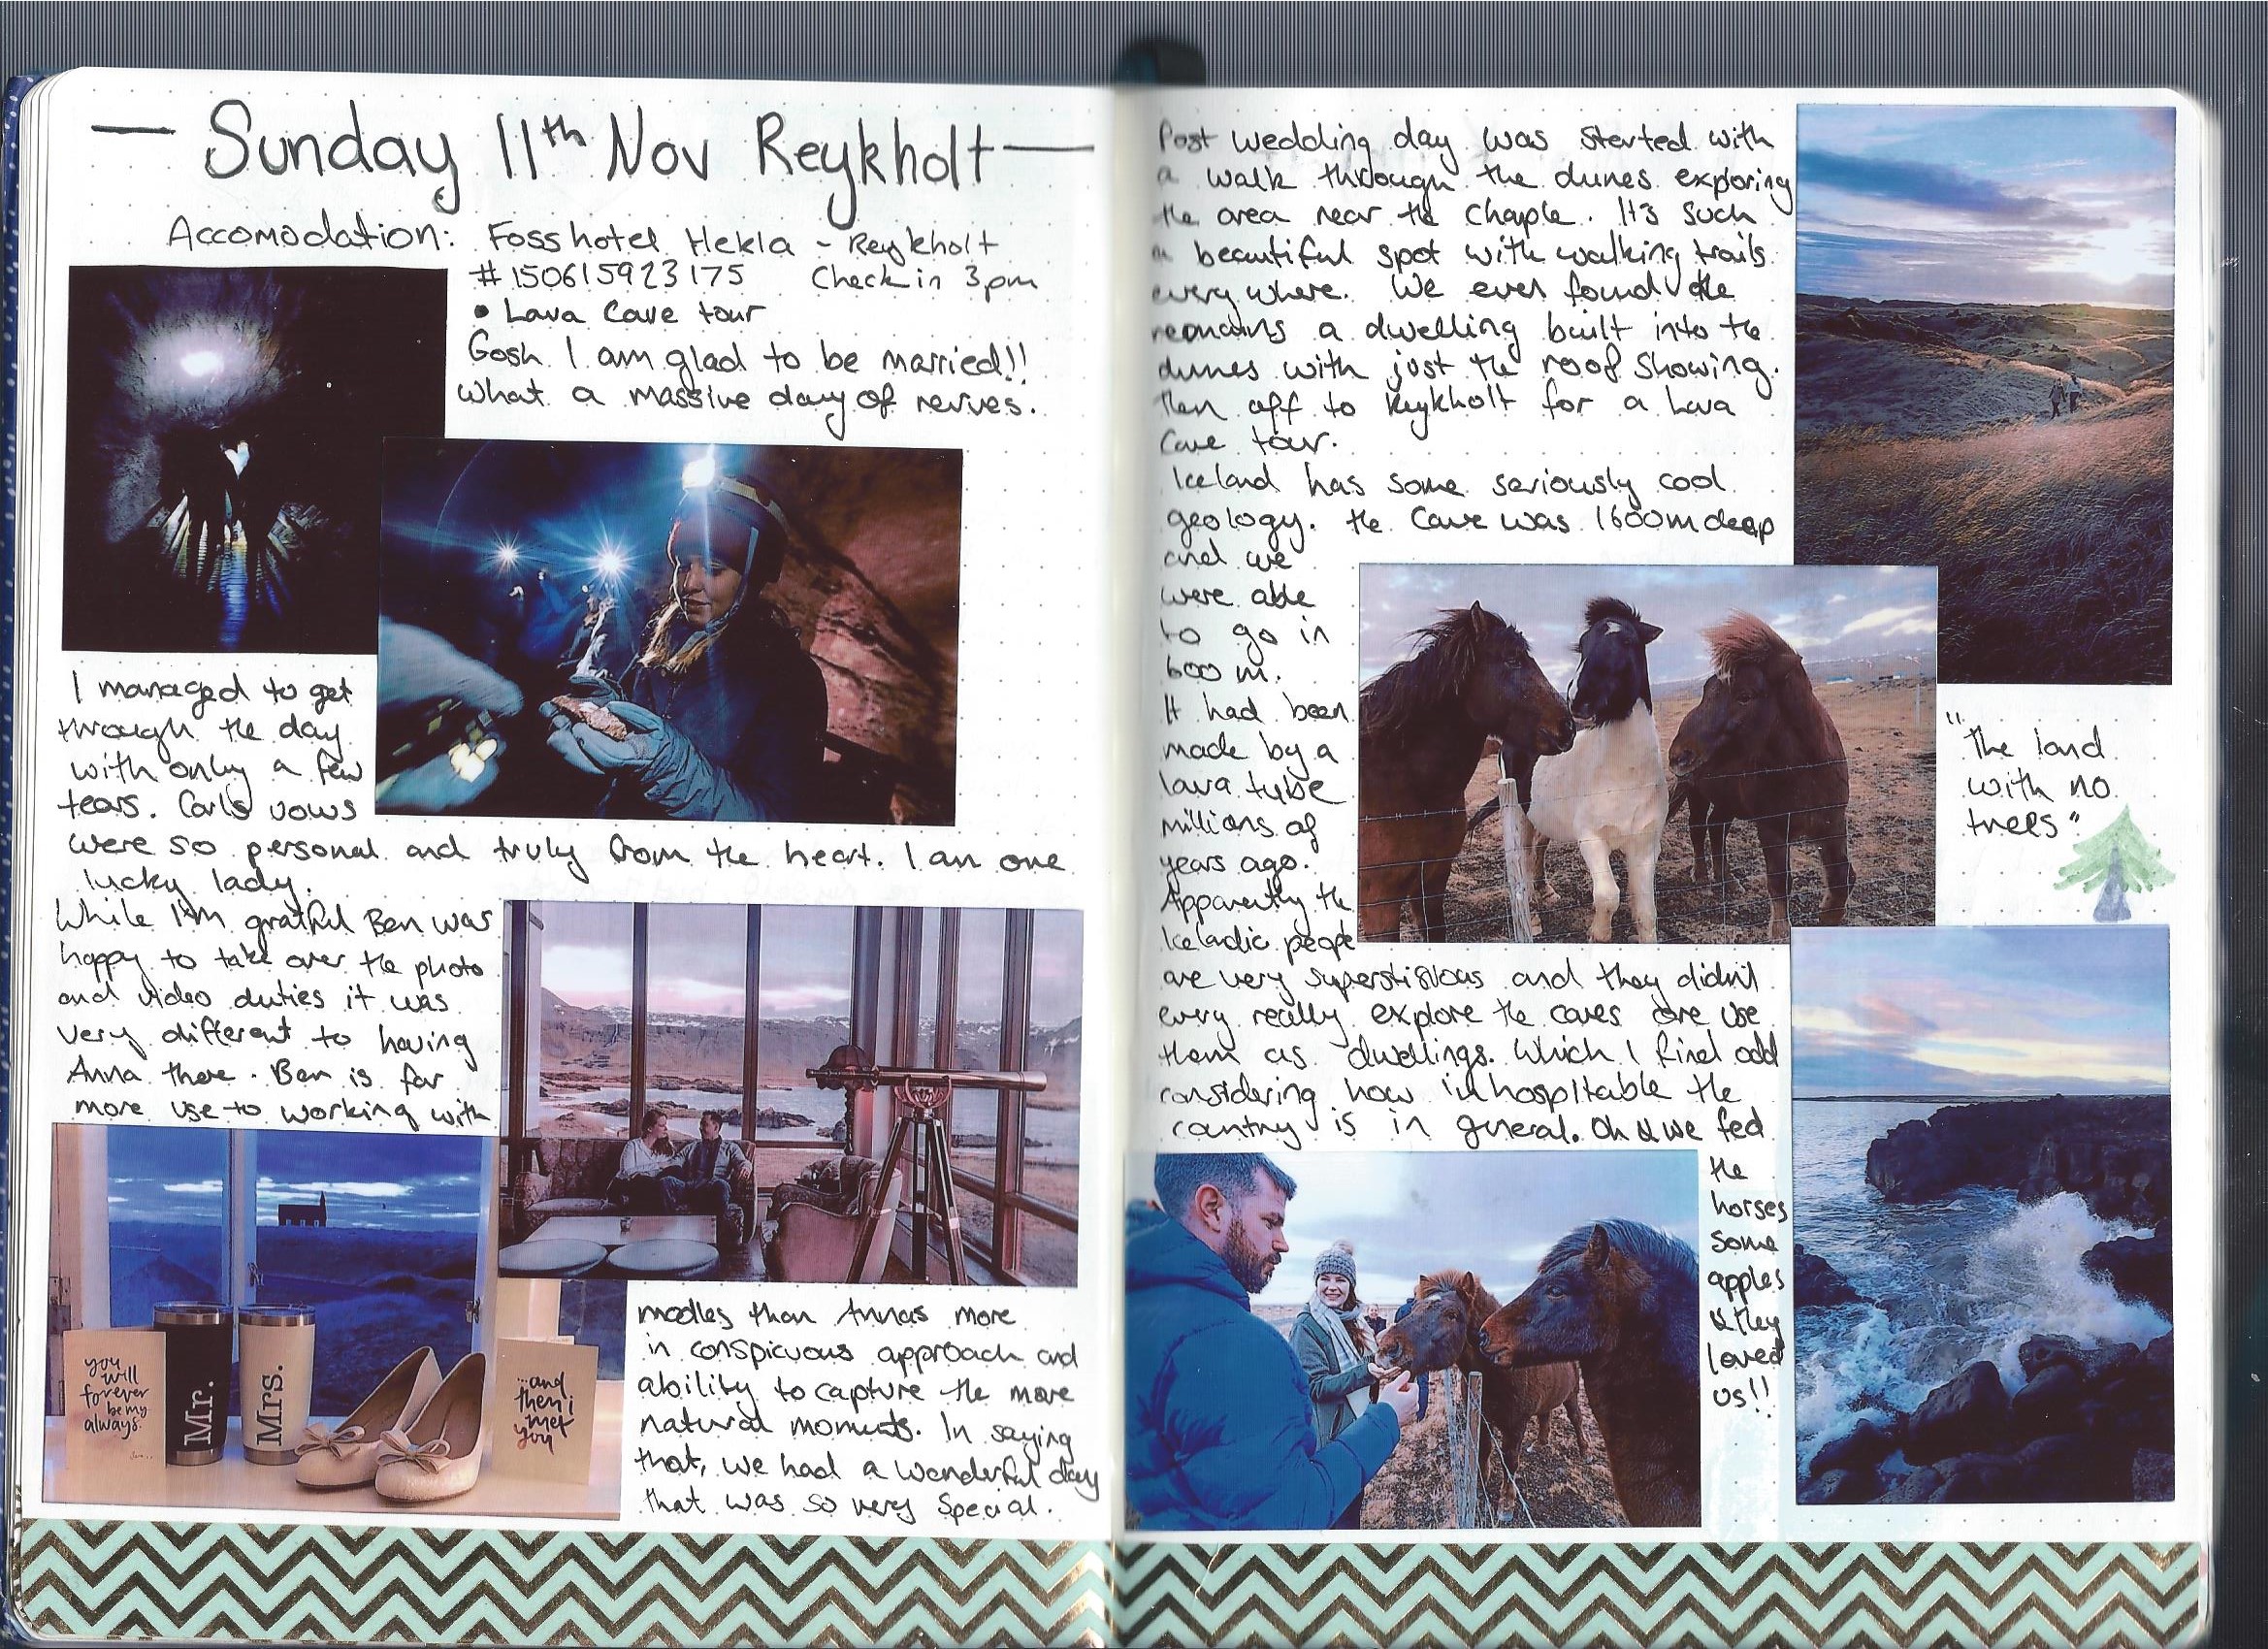 — Sunday 11th Nov Reykholt —
Accomodation: Fosshotel Hekla - Reykholt
#150615923175 Check in 3pm
• Lava Cave tour
Gosh I am glad to be married!!
What a massive day of nerves.
I managed to get
through the day
with only a few
tears. Carls vows
were so personal and truly from the heart. I am one
lucky lady.
While I'm grateful Ben was
happy to take over the photo
and video duties it was
very different to having
Anna there. Ben is far
more use to working with
you
will
forever
be my
always.
Mr.
Mrs.
...and
then i
met
you
modles than Annas more
in conspicuous approach and
ability to capture the more
natural moments. In saying
that, we had a wonderful day
that was so very special.
Post wedding day was started with
a walk through the dunes exploring
the area near the Chaple. It's such
a beautiful spot with walking trails
everywhere. We even found the
remains a dwelling built into the
dunes with just the roof showing.
Then off to Reykholt for a Lava
Cave tour.
Iceland has some seriously cool
geology. The Cave was 1600m deep
and we
were able
to go in
600m.
It had been
made by a
lava tube
millions of
years ago.
Apparently the
Iceladic people
are very superstitious and they didn't
every really explore the caves ore use
them as dwellings. Which I find odd
considering how inhospitable the
country is in general. Oh & we fed
the
horses
some
apples
& they
loved
us!!
"The land
with no
trees"